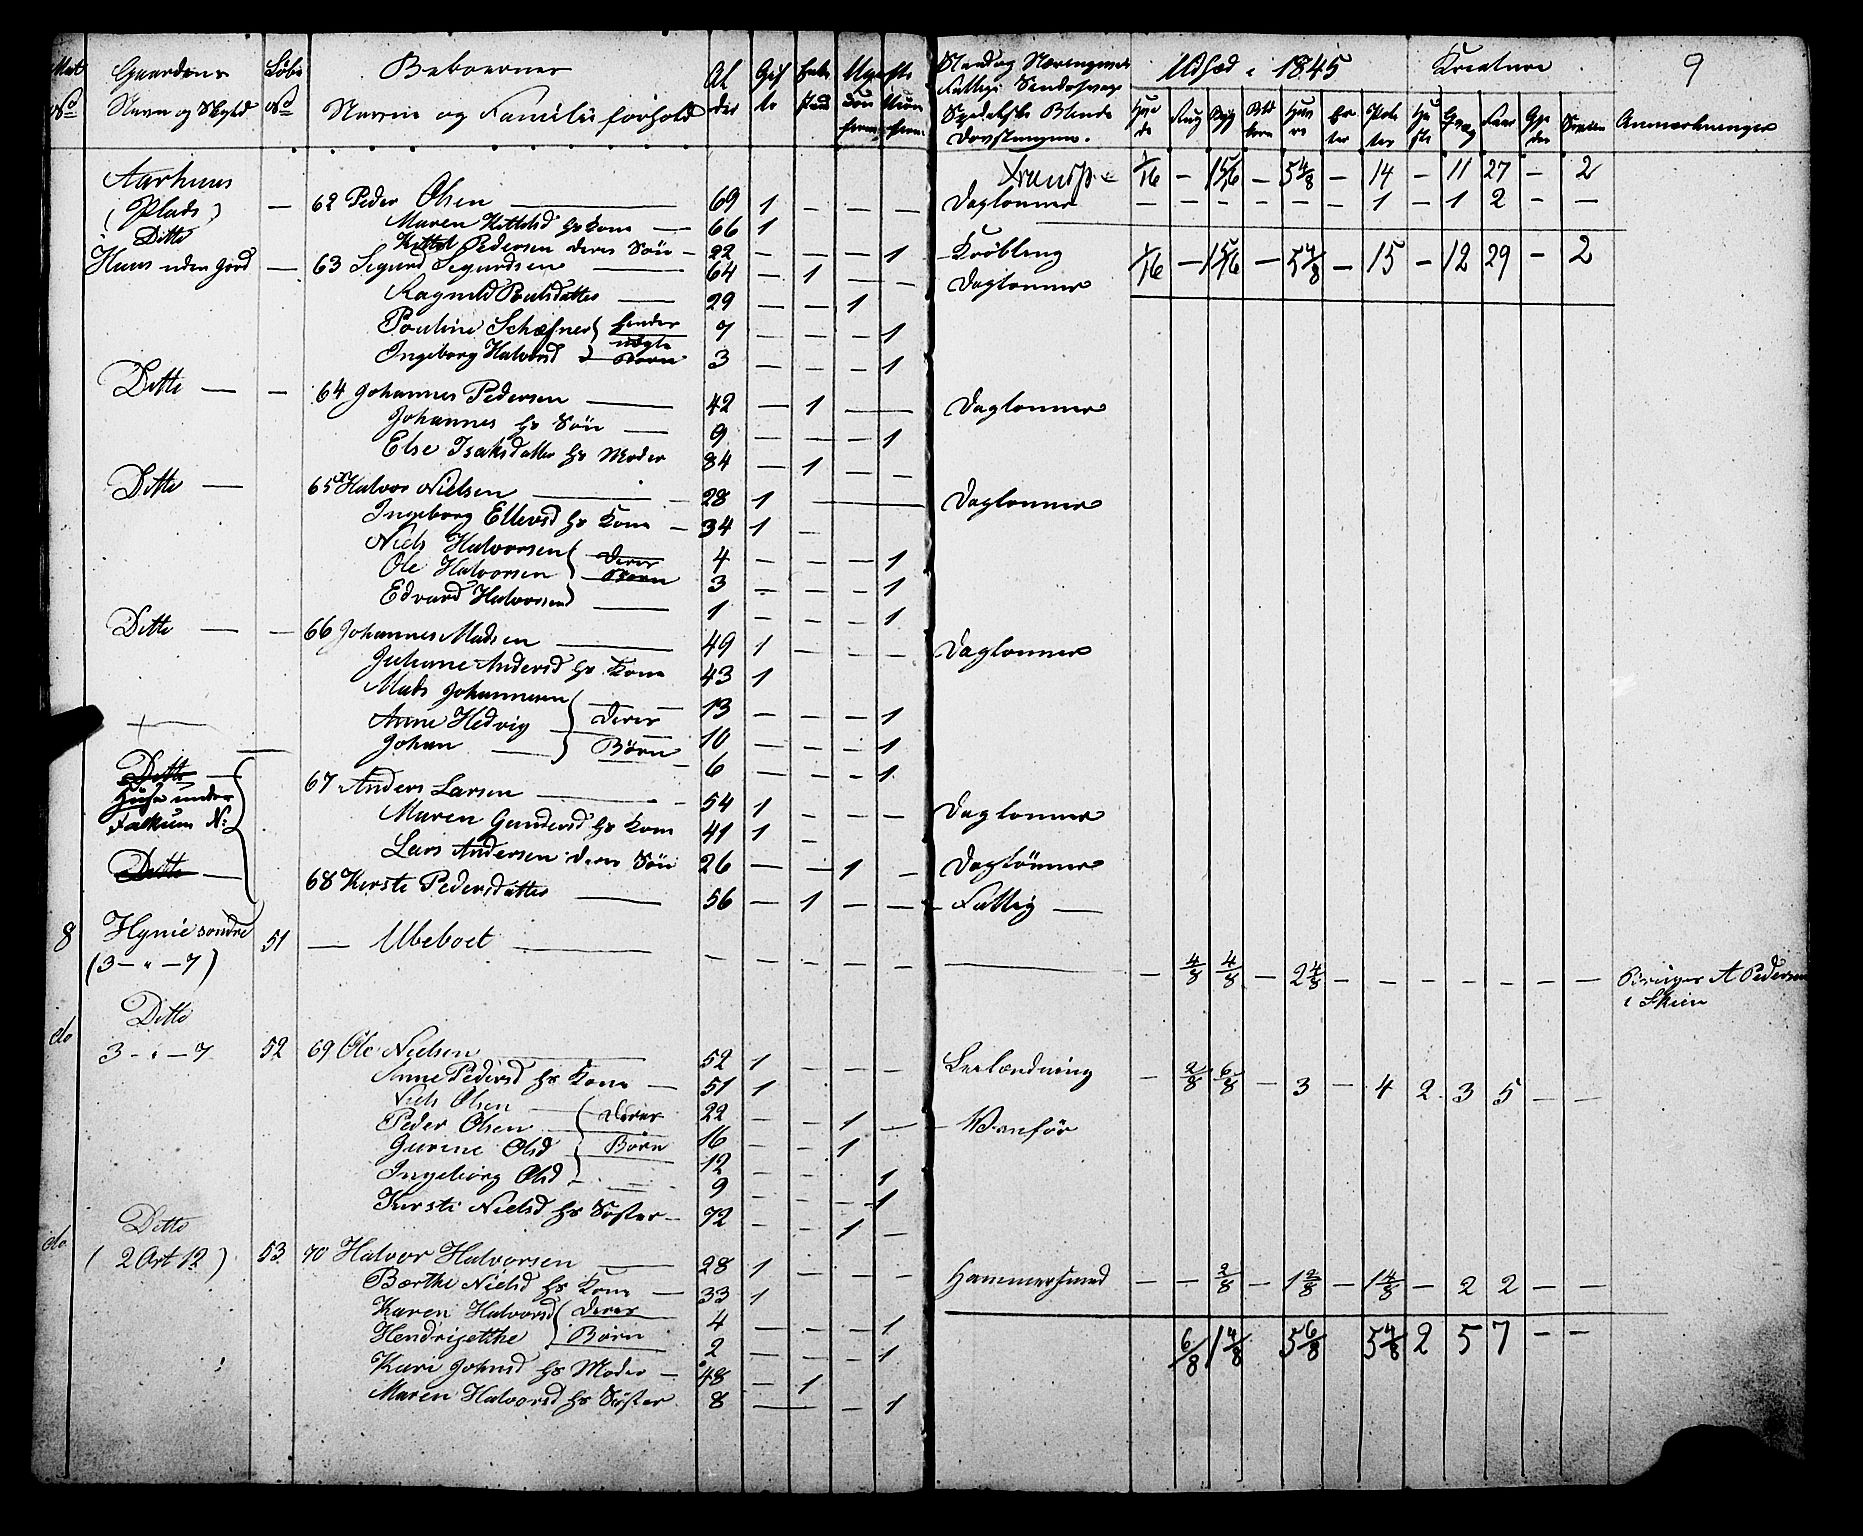 9
Mat No Gaardens Navn og Skyld Løbe No Beboernes Navne og Familieforhold Alder Gifte Enke stand Ugifte
Udsæd i 1845 Kreature
Hvede Rug Byg Havre Erter Poteter Heste Qvæg Faar Svin Anmerkninger
Aarhuus Transp. 1/16 — 15/16 — 5 4/8 — 14 — 11 27 — 2
(Plads) — 62 Peder Olsen 69 1 — — — Daglønner — — — — — — 1 — 1 2 — —
Ditto Maren Kittilsd hs Kone — 66 1
Kittel Pedersen deres Søn — 22 — — — 1 Krøbling 1/16 — 15/16 — 5 4/8 — 15 — 12 29 — 2
Huus uden Jord — 63 Sigurd Sigurdsen 64 — 1 — — Daglønner
Ragnild Poulsdatter — 29 — — 1
Pouline 7 — — — 1
Ingeborg Halvorsd Børn 3 — — — 1
Ditto — — 64 Johannes Pedersen 42 — 1 — Daglønner
Johannes hs Søn — 9 — — — 1
Else Isaksdatter hs Moder 84 — 1 — —
Ditto — 65 Halvor Nielsen 28 1 — Daglønner
Ingeborg Ellevsd hs Kone — 34 1 —
Niels Halvorsen deres 4 — — — 1
Ole Halvorsen Børn 3 — — — 1
Edvard Halvorsen 1 — — — 1
Ditto — — 66 Johannes Madsen 49 1 — — — Daglønner
Juliane Andersd hs Kone 43 1
Mads Johannesen 13 — — — 1
Anne Hedvig deres 10 — — — 1
Johan — Børn 6 — — — 1
Ditto —
Huse under 67 Anders Larsen 54 1 — — — Daglønner
Falkum N: Maren Gundersd hs Kone 41 1 —
Lars Andersen deres Søn 26 — — 1 — Daglønner
Ditto — 68 Kirsti Pedersdatter 56 — 1 — — Fattig —
8 Hynie søndre 51 — Ubeboet — — — — — 4/8 4/8 — 2 4/8 — — — — — — — Bruges A Pedersen
(3 — " — 7) i Skien
do Ditto
3 — " — 7 52 69 Ole Nielsen 52 1 — — — Selveiende — 2/8 6/8 — 3 — 4 2 3 5 — —
Anne Pedersd hs Kone — 51 1
Niels Olsen — deres 22 — — 1 — Vanfør
Peder Olsen Børn 16 — — 1
Gurine Olsd 12 — — — 1
Ingeborg Olsd — 9 — — — 1
Kirsti Nielsd hs Søster — 72 — — 1 —
do Ditto
(2 Ort 12) 53 70 Halvor Halvorsen 28 1 — — — Hammersmed — — 2/8 — 1 2/8 — 1 4/8 — 2 2 — —
Berthe Nielsd hs Kone — 33 1
Karen Halvorsd deres 4 — — — 1
Hendrigetthe Børn 2 — — — 1 6/8 1 4/8 5 6/8 5 4/8 2 5 7 — —
Kari Johnsd hs Moder — 48 — 1
Maren Halvorsd hs Søster 8 — — 1